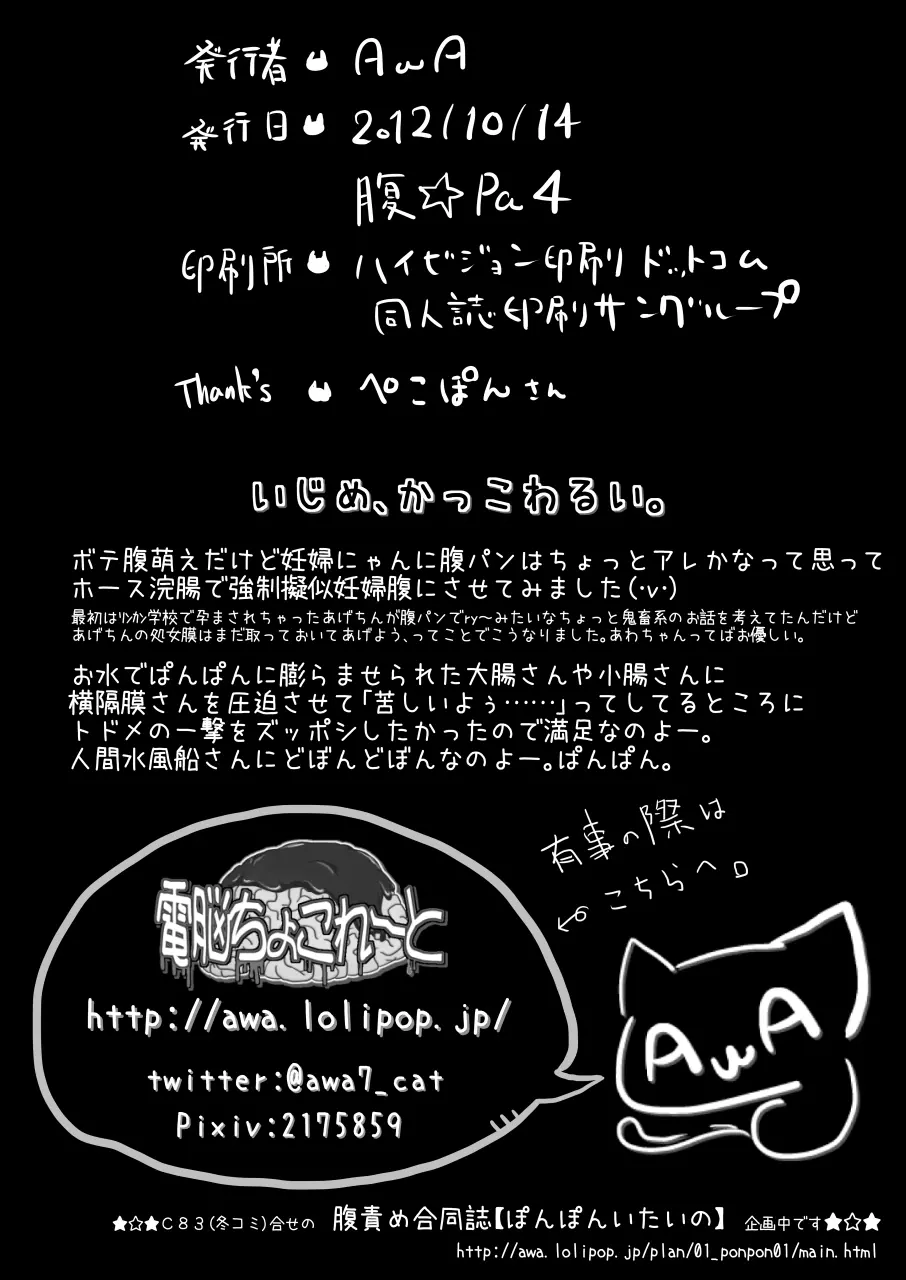 発行者 AwA
発行日 2012/10/14
腹☆Pa4
印刷所 ハイビジョン印刷ドットコム
同人誌印刷サングループ
Thank's ぺこぽんさん
いじめ、かっこわるい。
ボテ腹萌えだけど妊婦にゃんに腹パンはちょっとアレかなって思って
ホース浣腸で強制擬似妊婦腹にさせてみました(・v・)
最初はﾘﾝｶﾝ学校で孕まされちゃったあげちんが腹パンでry〜みたいなちょっと鬼畜系のお話を考えてたんだけど
あげちんの処女膜はまだ取っておいてあげよう、ってことでこうなりました。あわちゃんってばお優しい。
お水でぱんぱんに膨らませられた大腸さんや小腸さんに
横隔膜さんを圧迫させて「苦しいよぅ……」ってしてるところに
トドメの一撃をズッポシしたかったので満足なのよー。
人間水風船さんにどぼんどぼんなのよー。ぱんぱん。
有事の際は
こちらへ。
電脳ちょこれ〜と
http://awa.lolipop.jp/
twitter:@awa7_cat
Pixiv:2175859
AwA
★☆★C83(冬コミ)合せの 腹責め合同誌【ぽんぽんいたいの】 企画中です★☆★
http://awa.lolipop.jp/plan/01_ponpon01/main.html